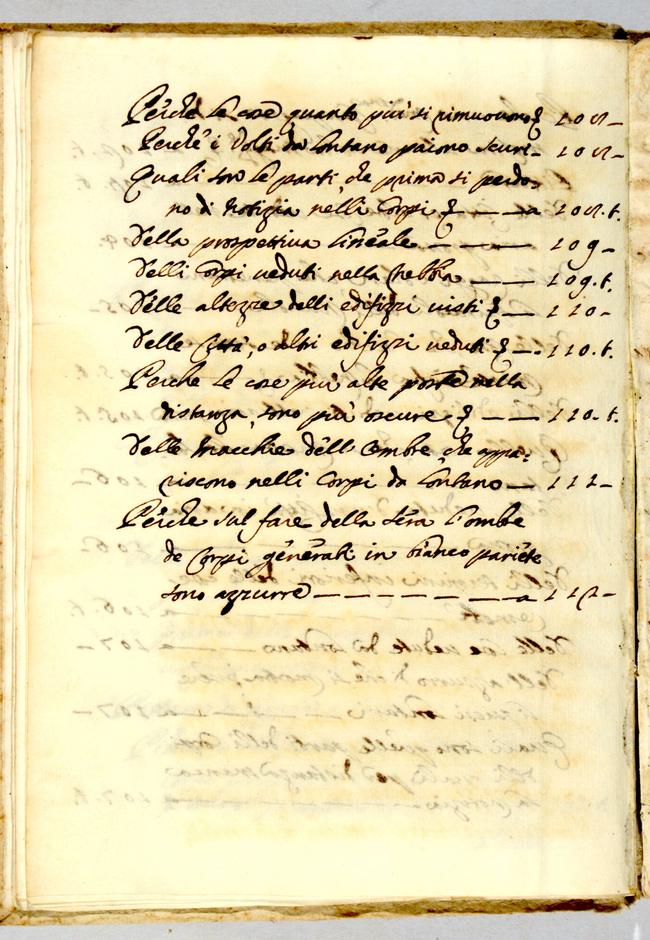 Perche le cose quanto più si rimuovono & 108 -
Perche i Volti da lontano paiono scuri - 108 -
Quali sono le parti, che prima si perdo=
no di Notizia nelli Corpi & — — a 108. t.
Della prospettiva lineale - — — 109 -
Delli Corpi veduti nella Nebbia — — 109. t.
Delle altezze delli edifizzi visti & — 110 -
Delle Città, o altri edifizzi veduti & — . 110. t.
Perche le cose più alte poste nella
distanza, sono più oscure & — — 110. t.
Delle Macchie dell' Ombre, che appa=
riscono nelli Corpi da lontano — 111 -
Perche sul fare della sera l'ombre
de Corpi generati in bianco pariete
sono azzurre — — — — — — a 112 -